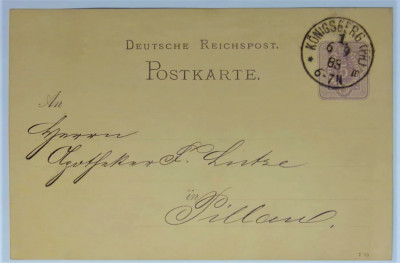 DEUTSCHE REICHSPOST.
POSTKARTE.
KÖNIGSBERG (PR)
6 9
89
6-7N
An
Herrn
Apotheker F. Lintze
in
Pillau.